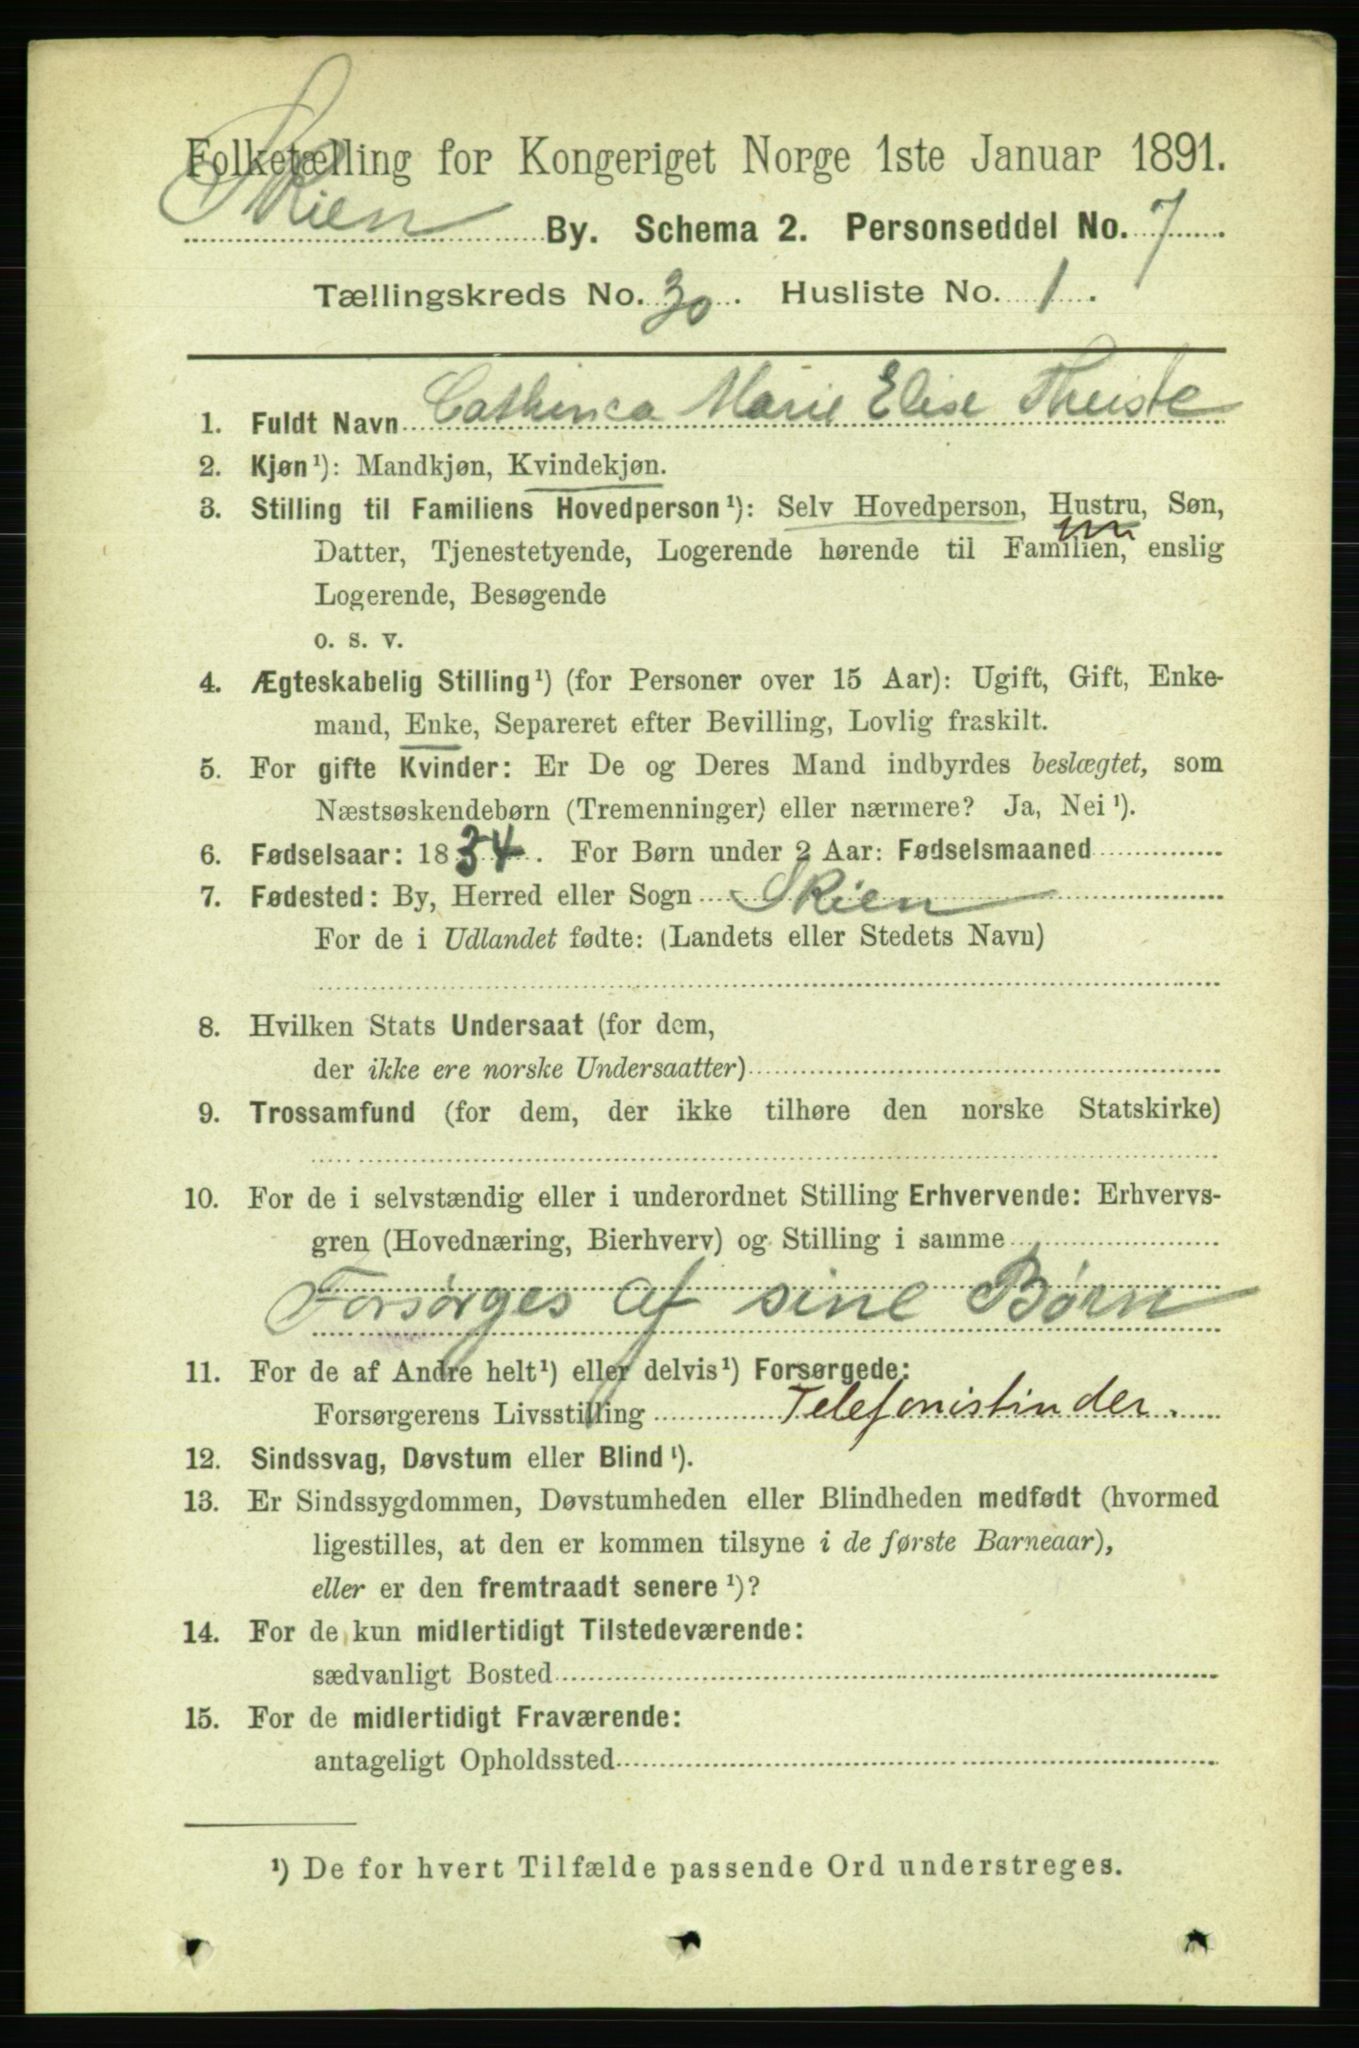 Folketælling for Kongeriget Norge 1ste Januar 1891.
Skien By. Schema 2. Personseddel No. 7
Tællingskreds No. 30. Husliste No. 1.
1. Fuldt Navn Cathinca Marie Elise Theiste
2. Kjøn¹): Mandkjøn, Kvindekjøn.
3. Stilling til Familiens Hovedperson¹): Selv Hovedperson, Hustru, Søn,
Datter, Tjenestetyende, Logerende hørende til Familien, enslig
Logerende, Besøgende
o. s. v.
4. Ægteskabelig Stilling¹) (for Personer over 15 Aar): Ugift, Gift, Enke-
mand, Enke, Separeret efter Bevilling, Lovlig fraskilt.
5. For gifte Kvinder: Er De og Deres Mand indbyrdes beslægtet, som
Næstsøskendebørn (Tremenninger) eller nærmere? Ja, Nei¹).
6. Fødselsaar: 1834. For Børn under 2 Aar: Fødselsmaaned
7. Fødested: By, Herred eller Sogn Skien
For de i Udlandet fødte: (Landets eller Stedets Navn)
8. Hvilken Stats Undersaat (for dem,
der ikke ere norske Undersaatter)
9. Trossamfund (for dem, der ikke tilhøre den norske Statskirke)
10. For de i selvstændig eller i underordnet Stilling Erhvervende: Erhvervs-
gren (Hovednæring, Bierhverv) og Stilling i samme
Forsørges af sine Børn
11. For de af Andre helt¹) eller delvis¹) Forsørgede:
Forsørgerens Livsstilling Telefonistinder.
12. Sindssvag, Døvstum eller Blind¹).
13. Er Sindssygdommen, Døvstumheden eller Blindheden medfødt (hvormed
ligestilles, at den er kommen tilsyne i de første Barneaar),
eller er den fremtraadt senere¹)?
14. For de kun midlertidigt Tilstedeværende:
sædvanligt Bosted
15. For de midlertidigt Fraværende:
antageligt Opholdssted
¹) De for hvert Tilfælde passende Ord understreges.